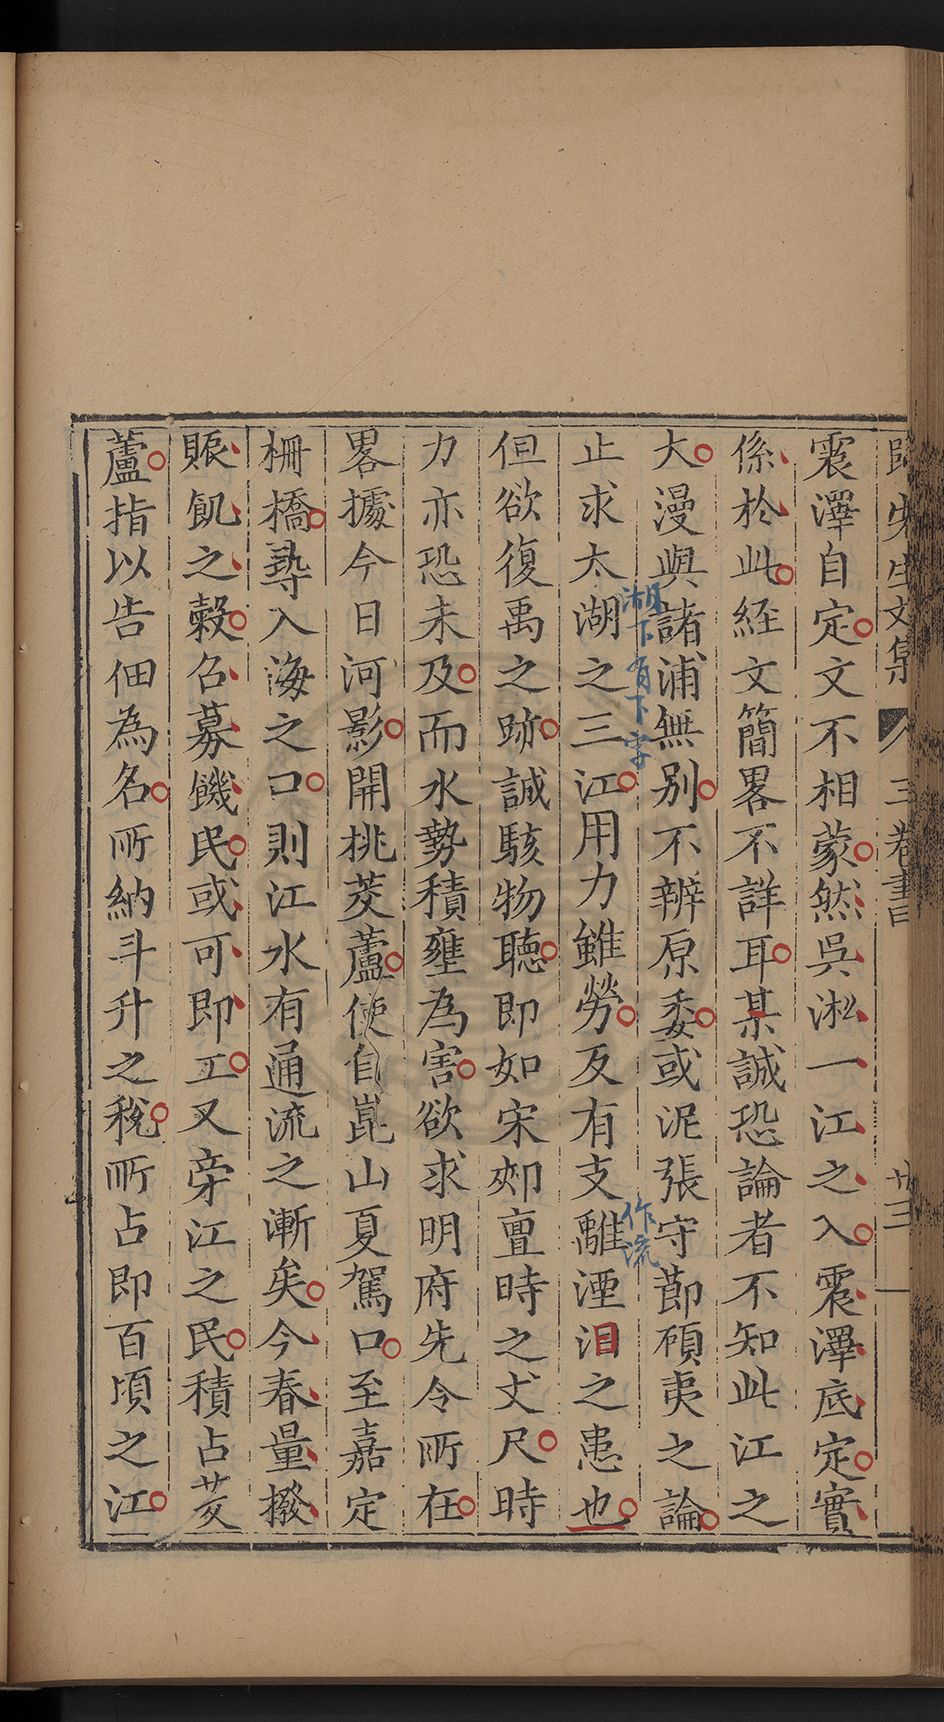 歸先生文集 三卷書 廿三
震澤自定文不相蒙然吳淞一江之入震澤底定實
係於此經文簡畧不詳耳某誠恐論者不知此江之
大漫與諸浦無别不辨原委或泥張守節碩夷之論
止求太湖之三江用力雖勞反有支離湮汨之患也
湖下有下字
作流
但欲復禹之跡誠駭物聽即如宋郟亶時之丈尺時
力亦恐未及而水勢積壅為害欲求明府先令所在
畧據今日河影開挑茭蘆使自崑山夏駕口至嘉定
柵橋尋入海之口則江水有通流之漸矣今春量撥
賑飢之穀召募饑民或可即工又旁江之民積占茭
蘆指以告佃為名所納斗升之稅所占即百頃之江